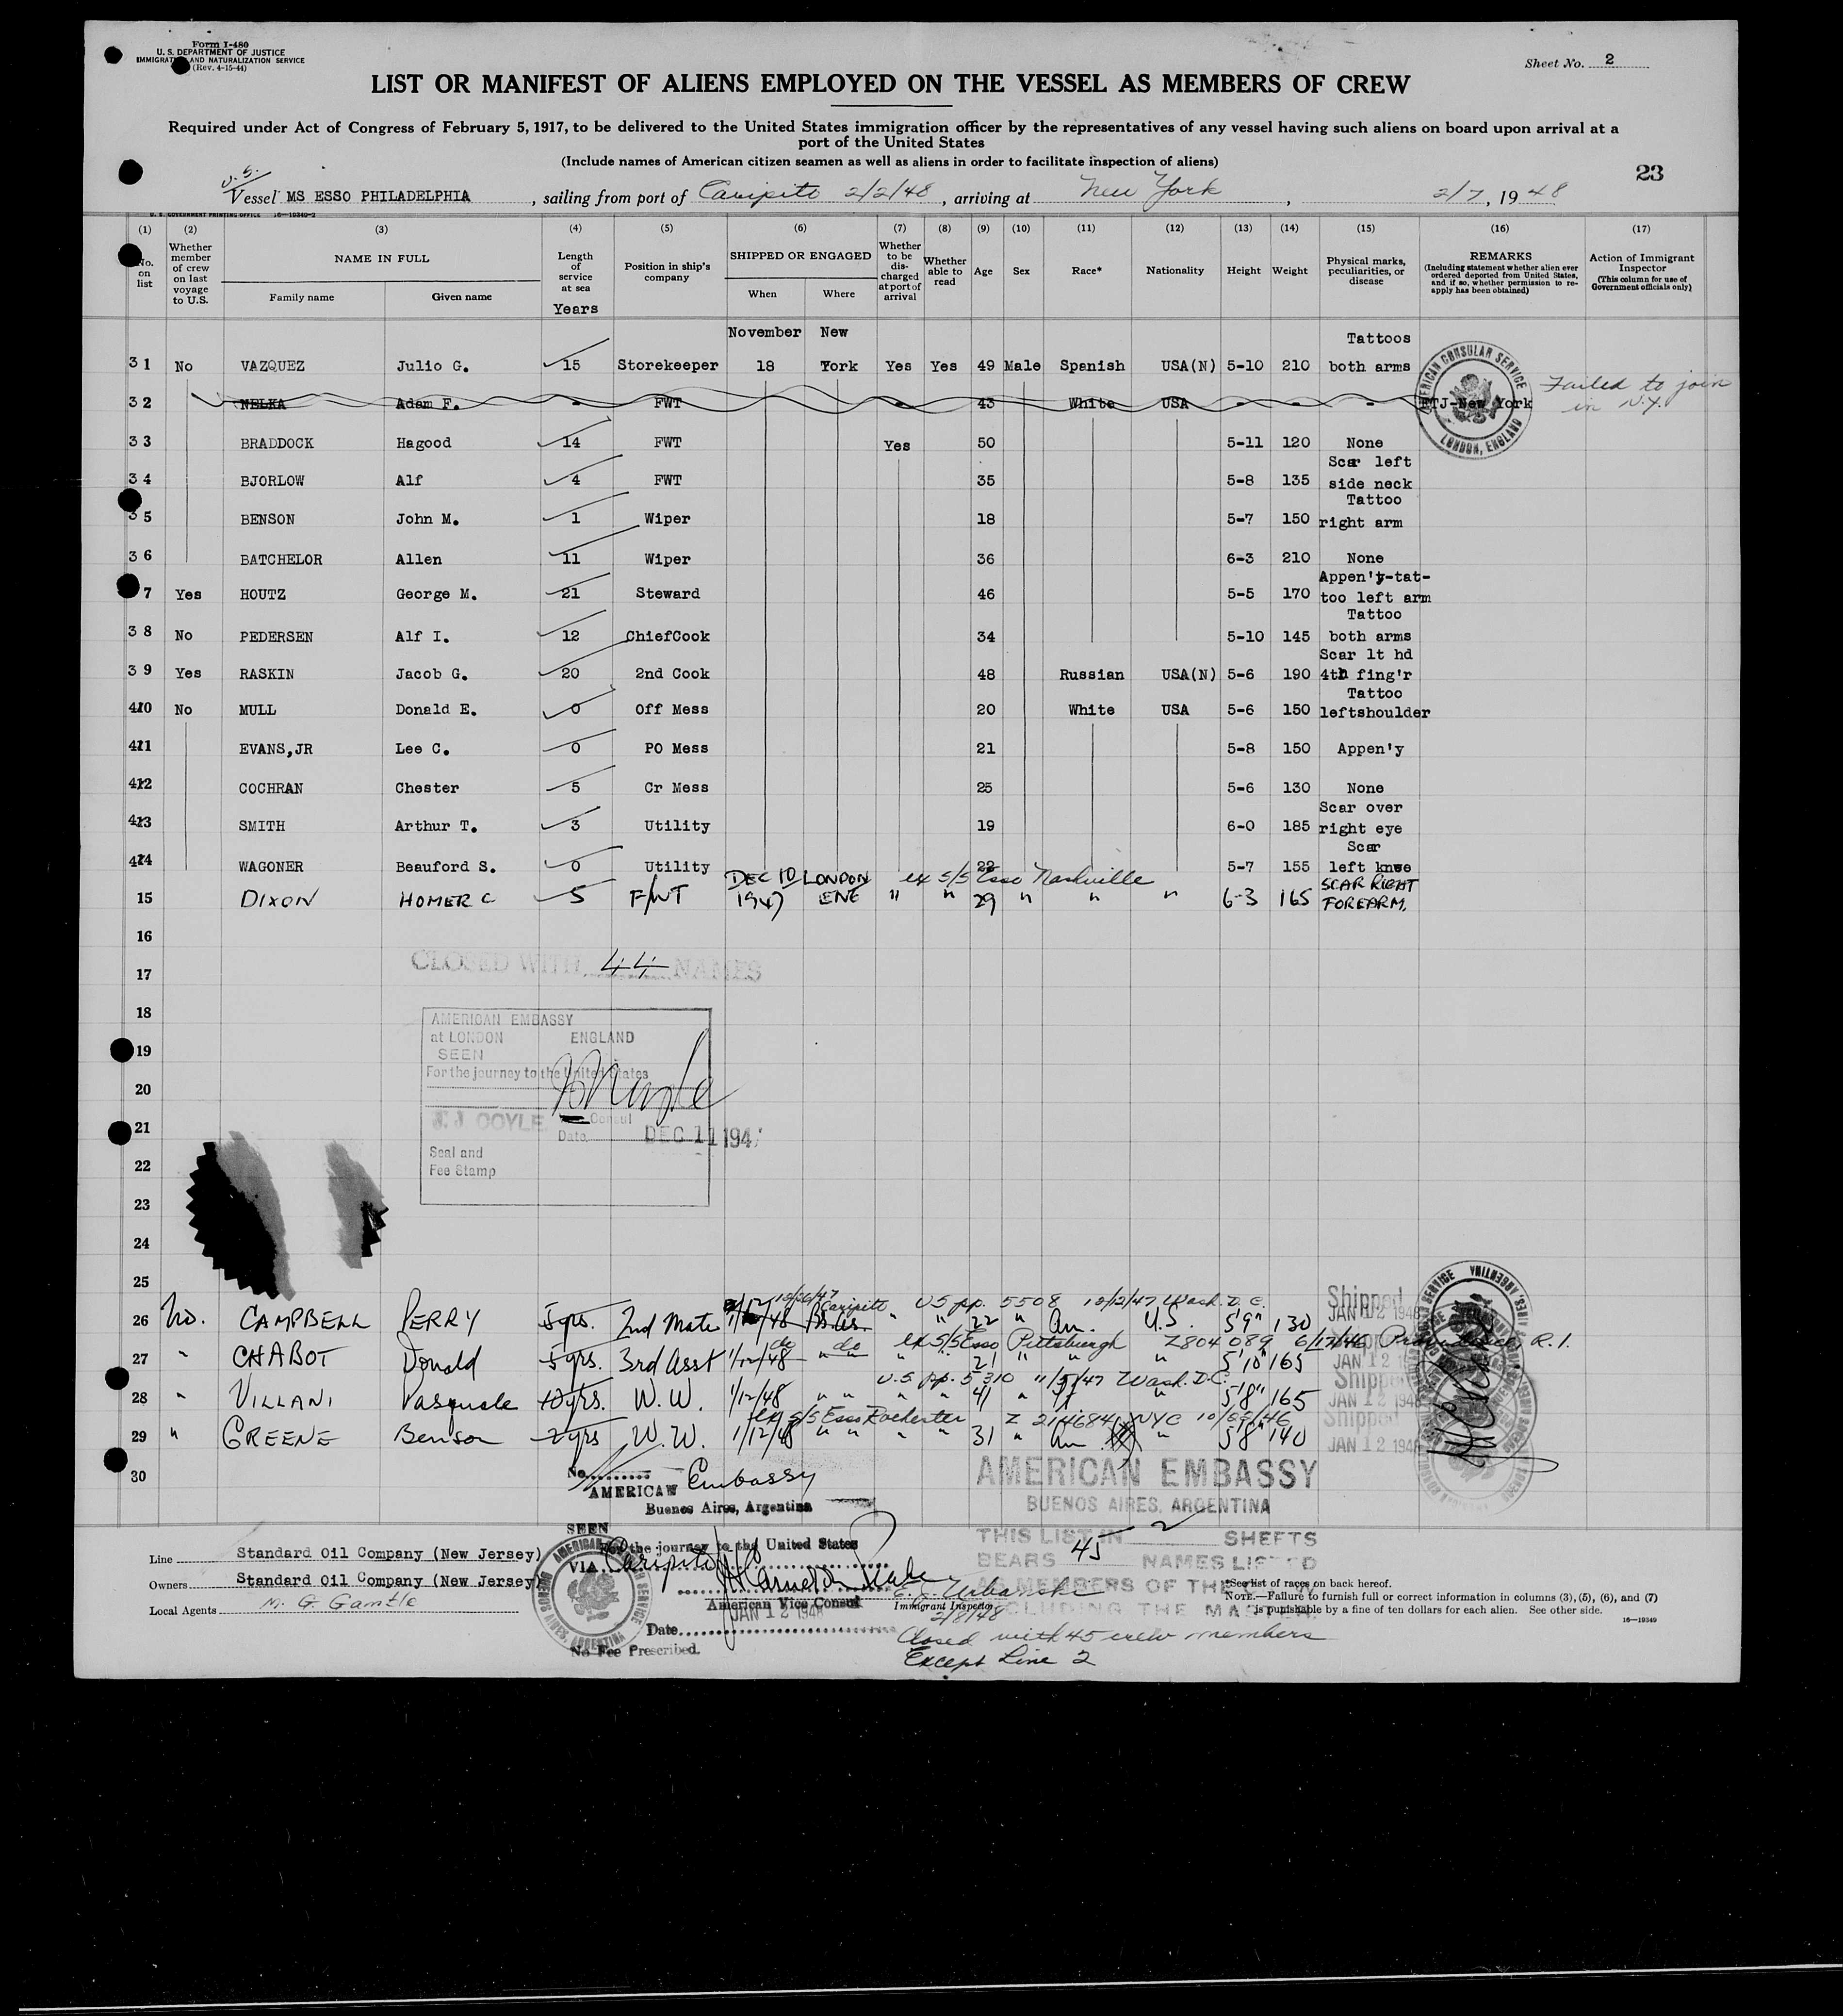 Form I-480
U. S. DEPARTMENT OF JUSTICE
IMMIGRATION AND NATURALIZATION SERVICE
(Rev. 4-15-44)
Sheet No. 2
LIST OR MANIFEST OF ALIENS EMPLOYED ON THE VESSEL AS MEMBERS OF CREW
Required under Act of Congress of February 5, 1917, to be delivered to the United States immigration officer by the representatives of any vessel having such aliens on board upon arrival at a
port of the United States
(Include names of American citizen seamen as well as aliens in order to facilitate inspection of aliens)
23
U.S.
Vessel MS ESSO PHILADELPHIA, sailing from port of Caripito 2/2/48, arriving at New York, 2/7, 1948
U. S. GOVERNMENT PRINTING OFFICE 16-19349-2
(1) (2) (3) (4) (5) (6) (7) (8) (9) (10) (11) (12) (13) (14) (15) (16) (17)
No. on list
Whether member of crew on last voyage to U.S.
NAME IN FULL
Family name
Given name
Length of service at sea
Years
Position in ship's company
SHIPPED OR ENGAGED
When
Where
Whether to be discharged at port of arrival
Whether able to read
Age
Sex
Race*
Nationality
Height
Weight
Physical marks, peculiarities, or disease
REMARKS
(Including statement whether alien ever ordered deported from United States, and if so, whether permission to reapply has been obtained)
Action of Immigrant Inspector
(This column for use of Government officials only)
November New Tattoos
31 No VAZQUEZ Julio G. 15 Storekeeper 18 York Yes Yes 49 Male Spanish USA(N) 5-10 210 both arms
32 NELKA Adam F. - FWT - 43 White USA - - - FTJ-New York
Failed to join
in N.Y.
AMERICAN CONSULAR SERVICE
LONDON, ENGLAND
33 BRADDOCK Hagood 14 FWT Yes 50 5-11 120 None
Scar left
34 BJORLOW Alf 4 FWT 35 5-8 135 side neck
Tattoo
35 BENSON John M. 1 Wiper 18 5-7 150 right arm
36 BATCHELOR Allen 11 Wiper 36 6-3 210 None
Appen'y-tat-
7 Yes HOUTZ George M. 21 Steward 46 5-5 170 too left arm
Tattoo
38 No PEDERSEN Alf I. 12 ChiefCook 34 5-10 145 both arms
Scar lt hd
39 Yes RASKIN Jacob G. 20 2nd Cook 48 Russian USA(N) 5-6 190 4th fing'r
Tattoo
40 No MULL Donald E. 0 Off Mess 20 White USA 5-6 150 leftshoulder
41 EVANS,JR Lee C. 0 PO Mess 21 5-8 150 Appen'y
42 COCHRAN Chester 5 Cr Mess 25 5-6 130 None
Scar over
43 SMITH Arthur T. 3 Utility 19 6-0 185 right eye
Scar
44 WAGONER Beauford S. 0 Utility 22 5-7 155 left knee
DEC 10 LONDON ex S/S Esso Nashville SCAR RIGHT
15 DIXON HOMER C 5 F/WT 1947 ENG " " 29 " " " 6-3 165 FOREARM.
16
CLOSED WITH 44 NAMES
17
18
AMERICAN EMBASSY
at LONDON ENGLAND
SEEN
19
For the journey to the United States
20
J. J. COYLE Consul
21
Date DEC 11 194
Seal and
Fee Stamp
22
23
24
25
10/26/47 Caripito U.S. pp. 5508 10/2/47 Wash. D.C. Shipped
26 No. CAMPBELL PERRY 5 yrs. 2nd Mate 1/12/48 Bs. As. " " 22 " Am. U.S. 5'9" 130 JAN 12 1948
do do ex S/S Esso Pittsburgh Z804 089 6/17/46 Providence, R.I.
27 " CHABOT Donald 5 yrs. 3rd Asst 1/12/48 " " " " 21 " " " 5'10" 165 JAN 12
U.S. pp. 5310 11/5/47 Wash. D.C. Shipped
28 " VILLANI Pasquale 10 yrs. W.W. 1/12/48 " " " " 41 " " 5'8" 165 JAN 12 1948
ex S/S Esso Rochester Z 214684 NYC Shipped
29 " GREENE Benson 2 yrs W.W. 1/12/48 " " " " 31 " Am " 5'8" 140 JAN 12 1948
30
No.
AMERICAN Embassy
Buenos Aires, Argentina
SEEN
For the journey to the United States
VIA Caripito
American Vice Consul
JAN 12 1948
Date
No Fee Prescribed.
AMERICAN EMBASSY
BUENOS AIRES, ARGENTINA
THIS LIST IN 2 SHEETS
BEARS 45 NAMES LISTED
AS MEMBERS OF THE CREW
INCLUDING THE MASTER
Line Standard Oil Company (New Jersey)
Owners Standard Oil Company (New Jersey)
Local Agents M. G. Gamble
Immigrant Inspector
2/8/48
Closed with 45 crew members
Except Line 2
*See list of races on back hereof.
NOTE.—Failure to furnish full or correct information in columns (3), (5), (6), and (7)
is punishable by a fine of ten dollars for each alien. See other side.
16—19349